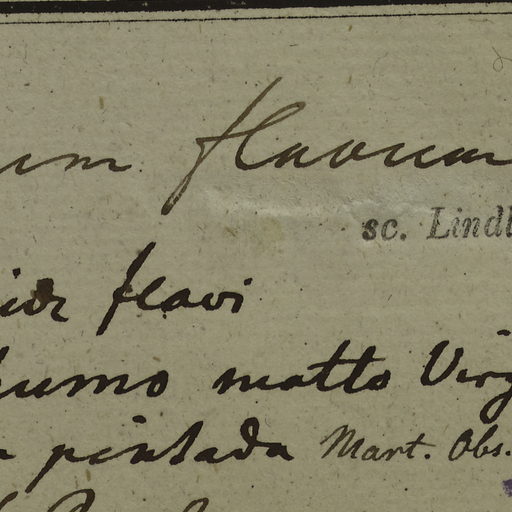 um flavum
sc. Lindl
flavi
humo matto Virg
pintada Mart. Obs.